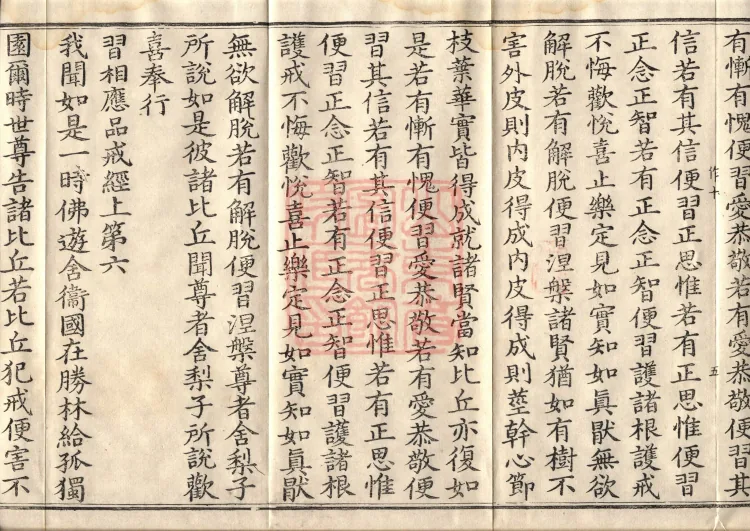 有慚有愧便習愛恭敬若有愛恭敬便習其
信若有其信便習正思惟若有正思惟便習
正念正智若有正念正智便習護諸根護戒
不悔歡悅喜止樂定見如實知如眞猒無欲
解脫若有解脫便習涅槃諸賢猶如有樹不
害外皮則內皮得成內皮得成則莖幹心節
枝葉華實皆得成就諸賢當知比丘亦復如
是若有慚有愧便習愛恭敬若有愛恭敬便
習其信若有其信便習正思惟若有正思惟
便習正念正智若有正念正智便習護諸根
護戒不悔歡悅喜止樂定見如實知如眞猒
無欲解脫若有解脫便習涅槃尊者舍梨子
所說如是彼諸比丘聞尊者舍梨子所說歡
喜奉行
習相應品戒經上第六
我聞如是一時佛遊舍衞國在勝林給孤獨
園爾時世尊告諸比丘若比丘犯戒便害不
作十
五